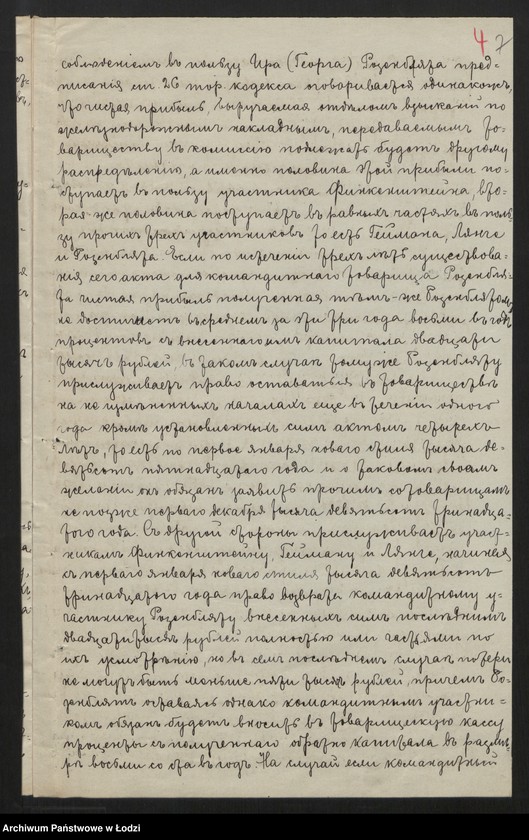 4 7
соблюденіемъ въ пользу Ира (Георга) Розенблята пред-
писанія ст 26 тор. кодекса оговаривается одинакожъ,
что чистая прибыль, выручаемая отдѣломъ взысканій по
желѣзнодорожнымъ накладнымъ, передаваемымъ То-
вариществу въ комиссію подлежать будетъ другому
распредѣленію, а именно половина этой прибыли по-
ступаетъ въ пользу участника Финкенштейна, вто-
рая же половина поступаетъ въ равныхъ частяхъ въ поль-
зу прочихъ трехъ участниковъ то есть Геймана, Лянге
и Розенблята. Если по истеченіи трехъ лѣтъ существова-
нія сего акта для командитнаго товарища Розенбля-
та чистая прибыль полученная тѣмъ-же Розенблятомъ
не достигнетъ въ среднемъ за эти три года восьми въ годъ
процентовъ съ внесеннаго имъ капитала двадцати
тысячъ рублей, въ такомъ случаѣ тому же Розенбляту
прислуживаетъ право оставаться въ товариществѣ
на не измѣненныхъ началахъ еще въ теченіи одного
года кромѣ установленныхъ симъ актомъ четырехъ
лѣтъ, то есть по первое января новаго стиля тысяча де-
вятьсотъ пятнадцатаго года и о таковомъ своемъ
желаніи онъ обязанъ заявить прочимъ сотоварищамъ
не позже перваго декабря тысяча девятьсотъ тринадца-
того года. Съ другой стороны прислуживаетъ участ-
никамъ Финкенштейну, Гейману и Лянге, начиная
съ перваго января новаго стиля тысяча девятьсотъ
тринадцатаго года право возврата командитному у-
частнику Розенбляту внесенныхъ симъ послѣднимъ
двадцати тысячъ рублей полностью или частями по
ихъ усмотрѣнію, но въ семъ послѣднемъ случаѣ
не могутъ быть меньше пяти тысячъ рублей, причемъ Ро-
зенблятъ оставаясь однако командитнымъ участни-
комъ обязанъ будетъ вносить въ товарищескую кассу
проценты съ полученнаго обратно капитала въ размѣ-
рѣ восьми со ста въ годъ. На случай если командитный
Archiwum Państwowe w Łodzi